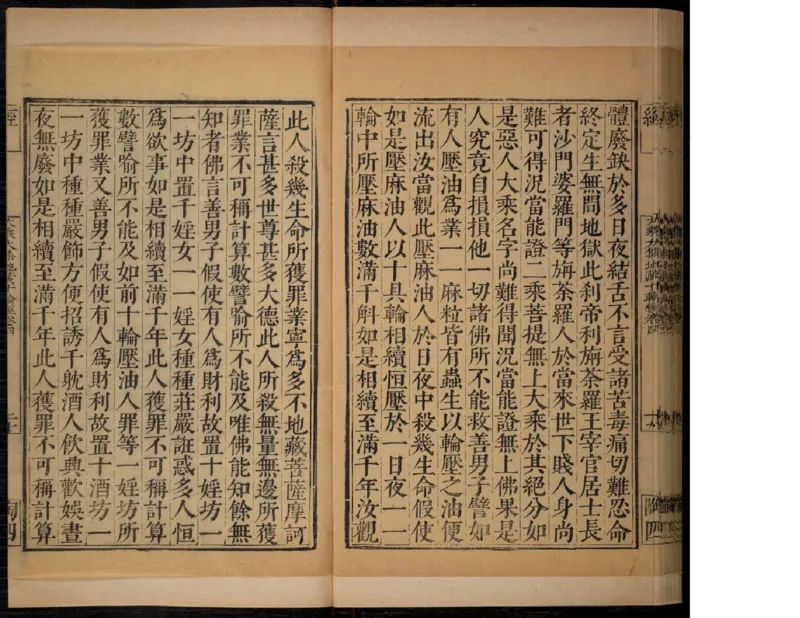 體廢鈌於多日夜結舌不言受諸苦毒痛切難忍命
終定生無間地獄此刹帝利旃荼羅王宰官居士長
者沙門婆羅門等旃荼羅人於當來世下賤人身尚
難可得況當能證二乘菩提無上大乘於其絕分如
是惡人大乘名字尚難得聞況當能證無上佛果是
人究竟自損損他一切諸佛所不能救善男子譬如
有人壓油爲業一一麻粒皆有蟲生以輪壓之油便
流出汝當觀此壓麻油人於日夜中殺幾生命假使
如是壓麻油人以十具輪相續恒壓於一日夜一一
輪中所壓麻油數滿千斛如是相續至滿千年汝觀
此人殺幾生命所獲罪業寧爲多不地藏菩薩摩訶
薩言甚多世尊甚多大德此人所殺無量無邊所獲
罪業不可稱計算數譬喻所不能及唯佛能知餘無
知者佛言善男子假使有人爲財利故置十婬坊一
一坊中置千婬女一一婬女種種莊嚴誑惑多人恒
爲欲事如是相續至滿千年此人獲罪不可稱計算
數譬喻所不能及如前十輪壓油人罪等一婬坊所
獲罪業又善男子假使有人爲財利故置十酒坊一
一坊中種種嚴飾方便招誘千躭酒人飲興歡娛晝
夜無廢如是相續至滿千年此人獲罪不可稱計算